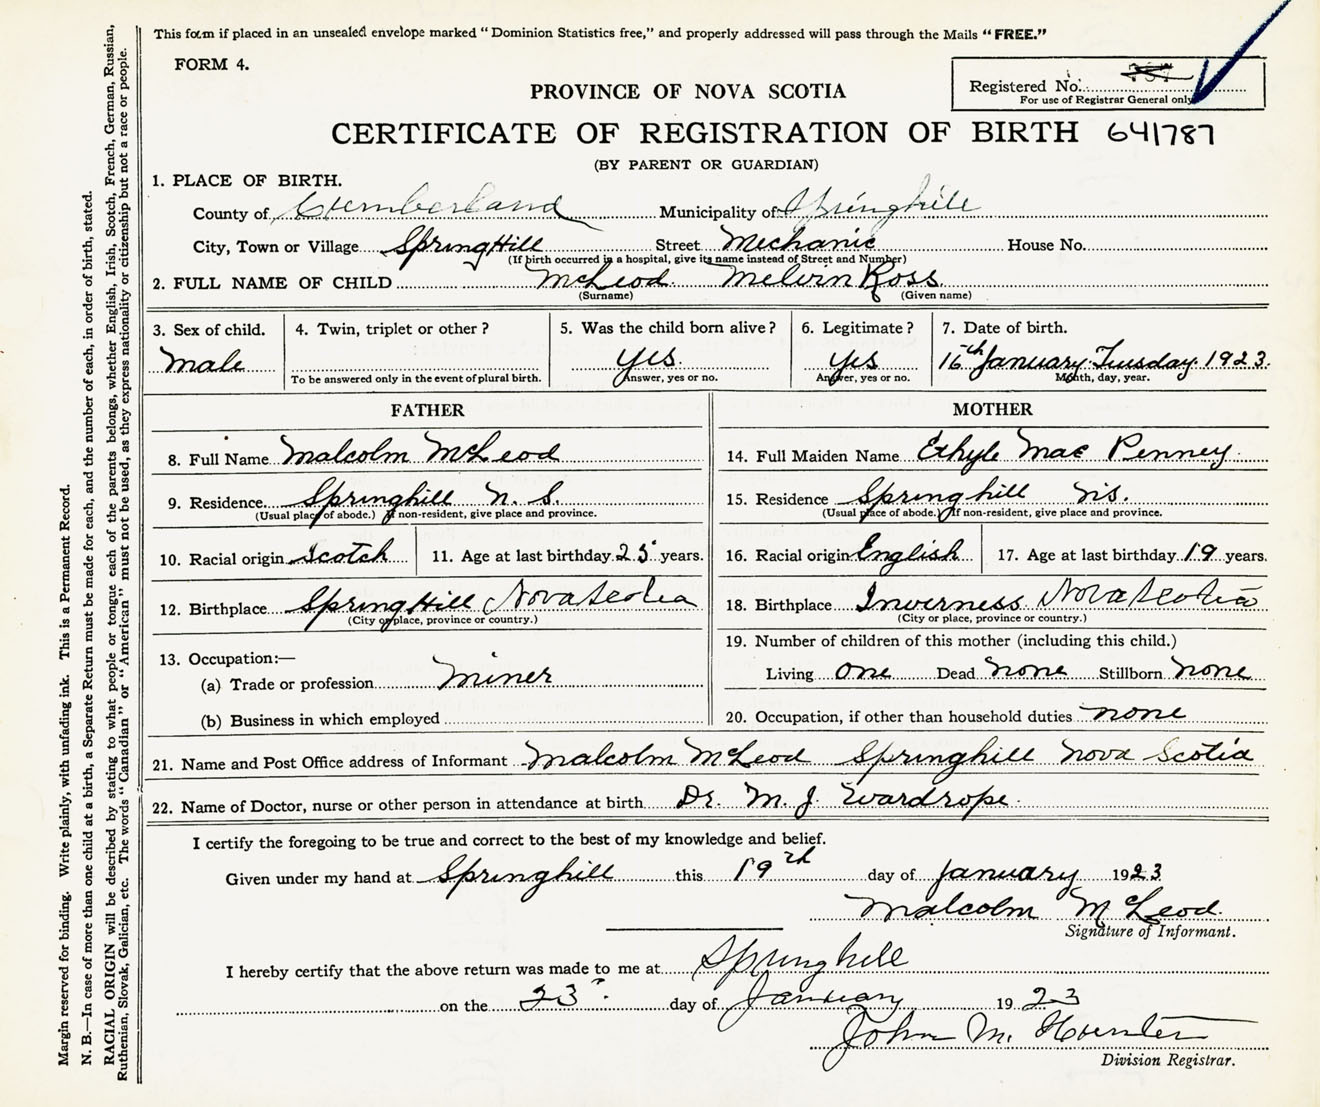 This form if placed in an unsealed envelope marked "Dominion Statistics free," and properly addressed will pass through the Mails "FREE."
FORM 4.
PROVINCE OF NOVA SCOTIA
Registered No.
For use of Registrar General only
CERTIFICATE OF REGISTRATION OF BIRTH 641787
(BY PARENT OR GUARDIAN)
1. PLACE OF BIRTH.
County of Cumberland Municipality of Springhill
City, Town or Village SpringHill Street Mechanic House No.
(If birth occurred in a hospital, give its name instead of Street and Number)
2. FULL NAME OF CHILD McLeod Melvin Ross
(Surname) (Given name)
3. Sex of child. 4. Twin, triplet or other? 5. Was the child born alive? 6. Legitimate? 7. Date of birth.
male yes. yes 16th January Tuesday 1923.
To be answered only in the event of plural birth. Answer, yes or no. Answer, yes or no. Month, day, year.
FATHER MOTHER
8. Full Name Malcolm McLeod 14. Full Maiden Name Ethyle Mae Penney
9. Residence Springhill N. S. 15. Residence Springhill N.S.
(Usual place of abode.) If non-resident, give place and province. (Usual place of abode.) If non-resident, give place and province.
10. Racial origin Scotch 11. Age at last birthday 25 years. 16. Racial origin English 17. Age at last birthday 19 years.
12. Birthplace SpringHill Nova Scotia 18. Birthplace Inverness Nova Scotia
(City or place, province or country.) (City or place, province or country.)
13. Occupation:— 19. Number of children of this mother (including this child.)
(a) Trade or profession miner Living one Dead none Stillborn none
(b) Business in which employed 20. Occupation, if other than household duties none
21. Name and Post Office address of Informant Malcolm McLeod Springhill Nova Scotia
22. Name of Doctor, nurse or other person in attendance at birth Dr. M. J. Wardrope.
I certify the foregoing to be true and correct to the best of my knowledge and belief.
Given under my hand at Springhill this 19th day of January 1923
Malcolm McLeod.
Signature of Informant.
I hereby certify that the above return was made to me at Springhill
on the 23 day of January 1923
John M. Hunter
Division Registrar.
Margin reserved for binding. Write plainly, with unfading ink. This is a Permanent Record.
N. B.—In case of more than one child at a birth, a Separate Return must be made for each, and the number of each, in order of birth, stated.
RACIAL ORIGIN will be described by stating to what people or tongue each of the parents belongs, whether English, Irish, Scotch, French, German, Russian,
Ruthenian, Slovak, Galician, etc. The words "Canadian" or "American" must not be used, as they express nationality or citizenship but not a race or people.